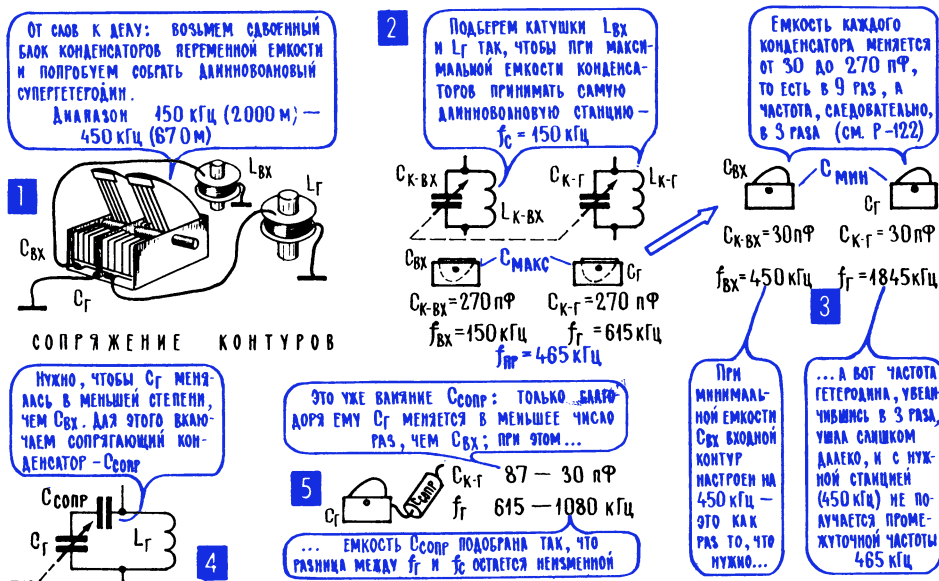 От слов к делу: возьмем сдвоенный
блок конденсаторов переменной емкости
и попробуем собрать длинноволновый
супергетеродин.
Диапазон 150 кГц (2000 м) —
450 кГц (670 м)
1
Lвх
Lг
Cвх
Cг
СОПРЯЖЕНИЕ КОНТУРОВ
2
Подберем катушки Lвх
и Lг так, чтобы при макси-
мальной емкости конденса-
торов принимать самую
длинноволновую станцию —
fс = 150 кГц
Cк-вх
Lк-вх
Cк-г
Lк-г
Cвх
Cмакс
Cг
Cк-вх = 270 пФ
Cк-г = 270 пФ
fвх = 150 кГц
fг = 615 кГц
fпр = 465 кГц
Емкость каждого
конденсатора меняется
от 30 до 270 пФ,
то есть в 9 раз, а
частота, следовательно,
в 3 раза (см. Р-122)
Cвх
Cмин
Cг
Cк-вх = 30 пФ
Cк-г = 30 пФ
fвх = 450 кГц
fг = 1845 кГц
3
При
минималь-
ной емкости
Cвх входной
контур
настроен на
450 кГц —
это как
раз то, что
нужно...
...А вот частота
гетеродина, увели-
чившись в 3 раза,
ушла слишком
далеко, и с нуж-
ной станцией
(450 кГц) не по-
лучается проме-
жуточной частоты
465 кГц
Нужно, чтобы Cг меня-
лась в меньшей степени,
чем Cвх. Для этого вклю-
чаем сопрягающий кон-
денсатор – Cсопр
Cсопр
Cг
Lг
4
Это уже влияние Cсопр: только благо-
доря ему Cг меняется в меньшее число
раз, чем Cвх; при этом...
5
Cг
Cсопр
Cк-г 87 — 30 пФ
fг 615 — 1080 кГц
... емкость Cсопр подобрана так, что
разница между fг и fс остается неизменной